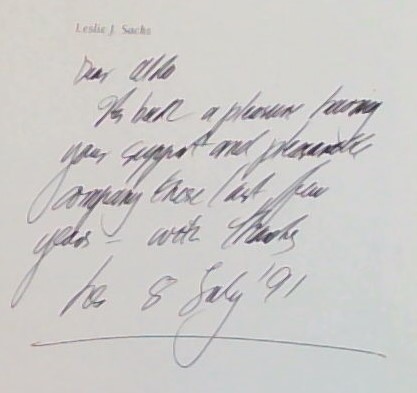 Leslie J. Sachs
Dear Aldo
It's been a pleasure having
your support and pleasurable
company these last few
years – with thanks
Les 8 July '91